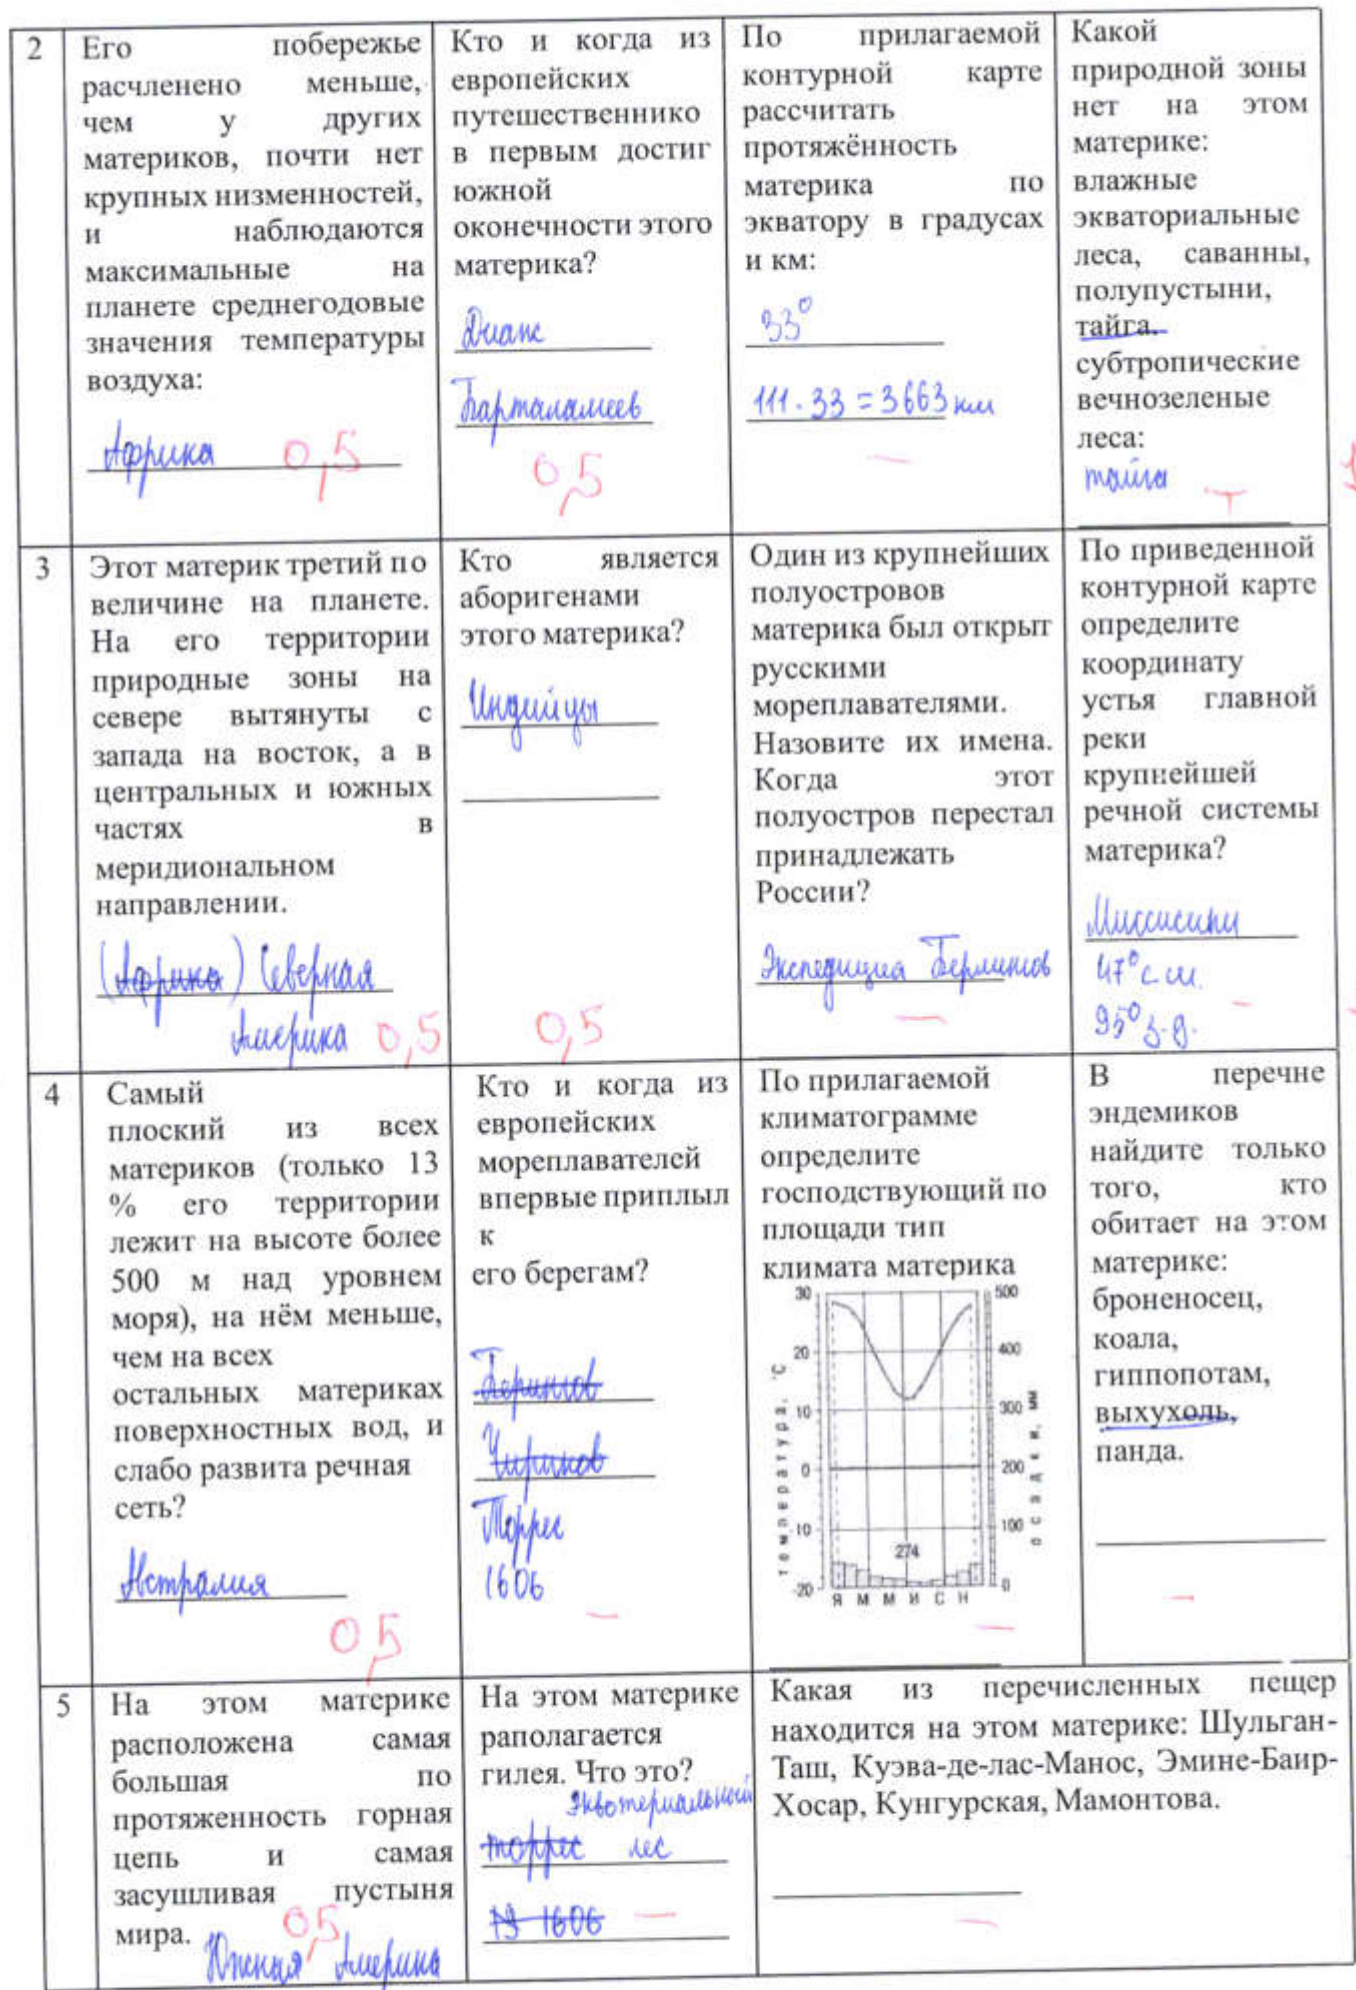 2
Его побережье
расчленено меньше,
чем у других
материков, почти нет
крупных низменностей,
и наблюдаются
максимальные на
планете среднегодовые
значения температуры
воздуха:
Африка 0,5
Кто и когда из
европейских
путешественнико
в первым достиг
южной
оконечности этого
материка?
Диаис
Барталамеев
0,5
По прилагаемой
контурной карте
рассчитать
протяжённость
материка по
экватору в градусах
и км:
33°
111·33=3663 км
—
Какой
природной зоны
нет на этом
материке:
влажные
экваториальные
леса, саванны,
полупустыни,
тайга,
субтропические
вечнозеленые
леса:
тайга
3
Этот материк третий по
величине на планете.
На его территории
природные зоны на
севере вытянуты с
запада на восток, а в
центральных и южных
частях в
меридиональном
направлении.
(Африка) Северная
Америка 0,5
Кто является
аборигенами
этого материка?
Индийцы
0,5
Один из крупнейших
полуостровов
материка был открыт
русскими
мореплавателями.
Назовите их имена.
Когда этот
полуостров перестал
принадлежать
России?
Экспедиция Берлингов
—
По приведенной
контурной карте
определите
координату
устья главной
реки
крупнейшей
речной системы
материка?
Миссисипи
47° с.ш.
95° з.д. —
4
Самый
плоский из всех
материков (только 13
% его территории
лежит на высоте более
500 м над уровнем
моря), на нём меньше,
чем на всех
остальных материках
поверхностных вод, и
слабо развита речная
сеть?
Австралия
0,5
Кто и когда из
европейских
мореплавателей
впервые приплыл
к
его берегам?
Берингов
Чириков
Торрес
1606
—
По прилагаемой
климатограмме
определите
господствующий по
площади тип
климата материка
30
20
10
0
-10
-20
температура, °C
500
400
300
200
100
0
осадки, мм
274
Я М М И С Н
—
В перечне
эндемиков
найдите только
того, кто
обитает на этом
материке:
броненосец,
коала,
гиппопотам,
выхухоль,
панда.
—
5
На этом материке
расположена самая
большая по
протяженность горная
цепь и самая
засушливая пустыня
мира. 0,5
Южная Америка
На этом материке
раполагается
гилея. Что это?
Эквотериальный
торрес лес
19 1606 —
Какая из перечисленных пещер
находится на этом материке: Шульган-
Таш, Куэва-де-лас-Манос, Эмине-Баир-
Хосар, Кунгурская, Мамонтова.
—